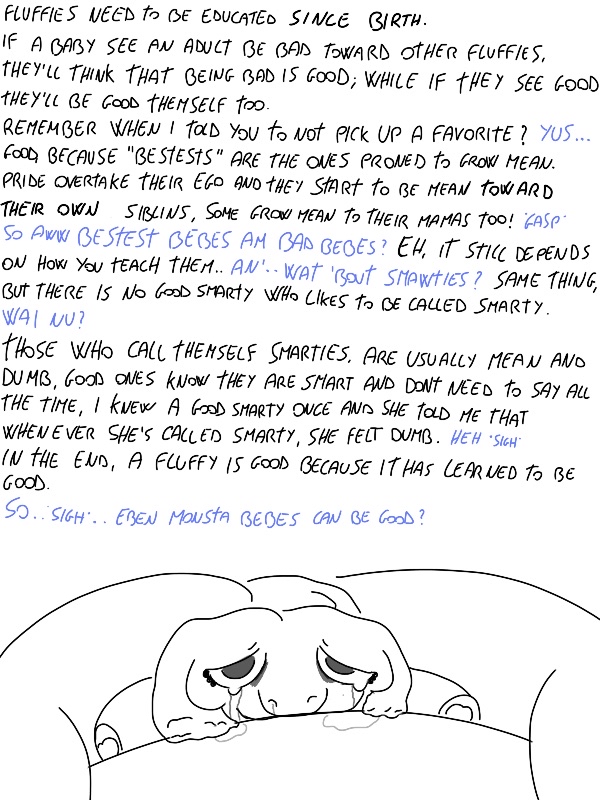 FLUFFIES NEED TO BE EDUCATED SINCE BIRTH.
IF A BABY SEE AN ADULT BE BAD TOWARD OTHER FLUFFIES,
THEY'LL THINK THAT BEING BAD IS GOOD; WHILE IF THEY SEE GOOD
THEY'LL BE GOOD THEMSELF TOO.
REMEMBER WHEN I TOLD YOU TO NOT PICK UP A FAVORITE? YUS...
GOOD, BECAUSE "BESTESTS" ARE THE ONES PRONED TO GROW MEAN.
PRIDE OVERTAKE THEIR EGO AND THEY START TO BE MEAN TOWARD
THEIR OWN SIBLINS, SOME GROW MEAN TO THEIR MAMAS TOO! *GASP*
SO AWW BESTEST BEBES AM BAD BEBES? EH, IT STILL DEPENDS
ON HOW YOU TEACH THEM.. AN'.. WAT 'BOUT SMAWTIES? SAME THING,
BUT THERE IS NO GOOD SMARTY WHO LIKES TO BE CALLED SMARTY.
WAI NU?
THOSE WHO CALL THEMSELF SMARTIES, ARE USUALLY MEAN AND
DUMB, GOOD ONES KNOW THEY ARE SMART AND DONT NEED TO SAY ALL
THE TIME, I KNEW A GOOD SMARTY ONCE AND SHE TOLD ME THAT
WHENEVER SHE'S CALLED SMARTY, SHE FELT DUMB. HEH *SIGH*
IN THE END, A FLUFFY IS GOOD BECAUSE IT HAS LEARNED TO BE
GOOD.
SO.. *SIGH*.. EBEN MONSTA BEBES CAN BE GOOD?